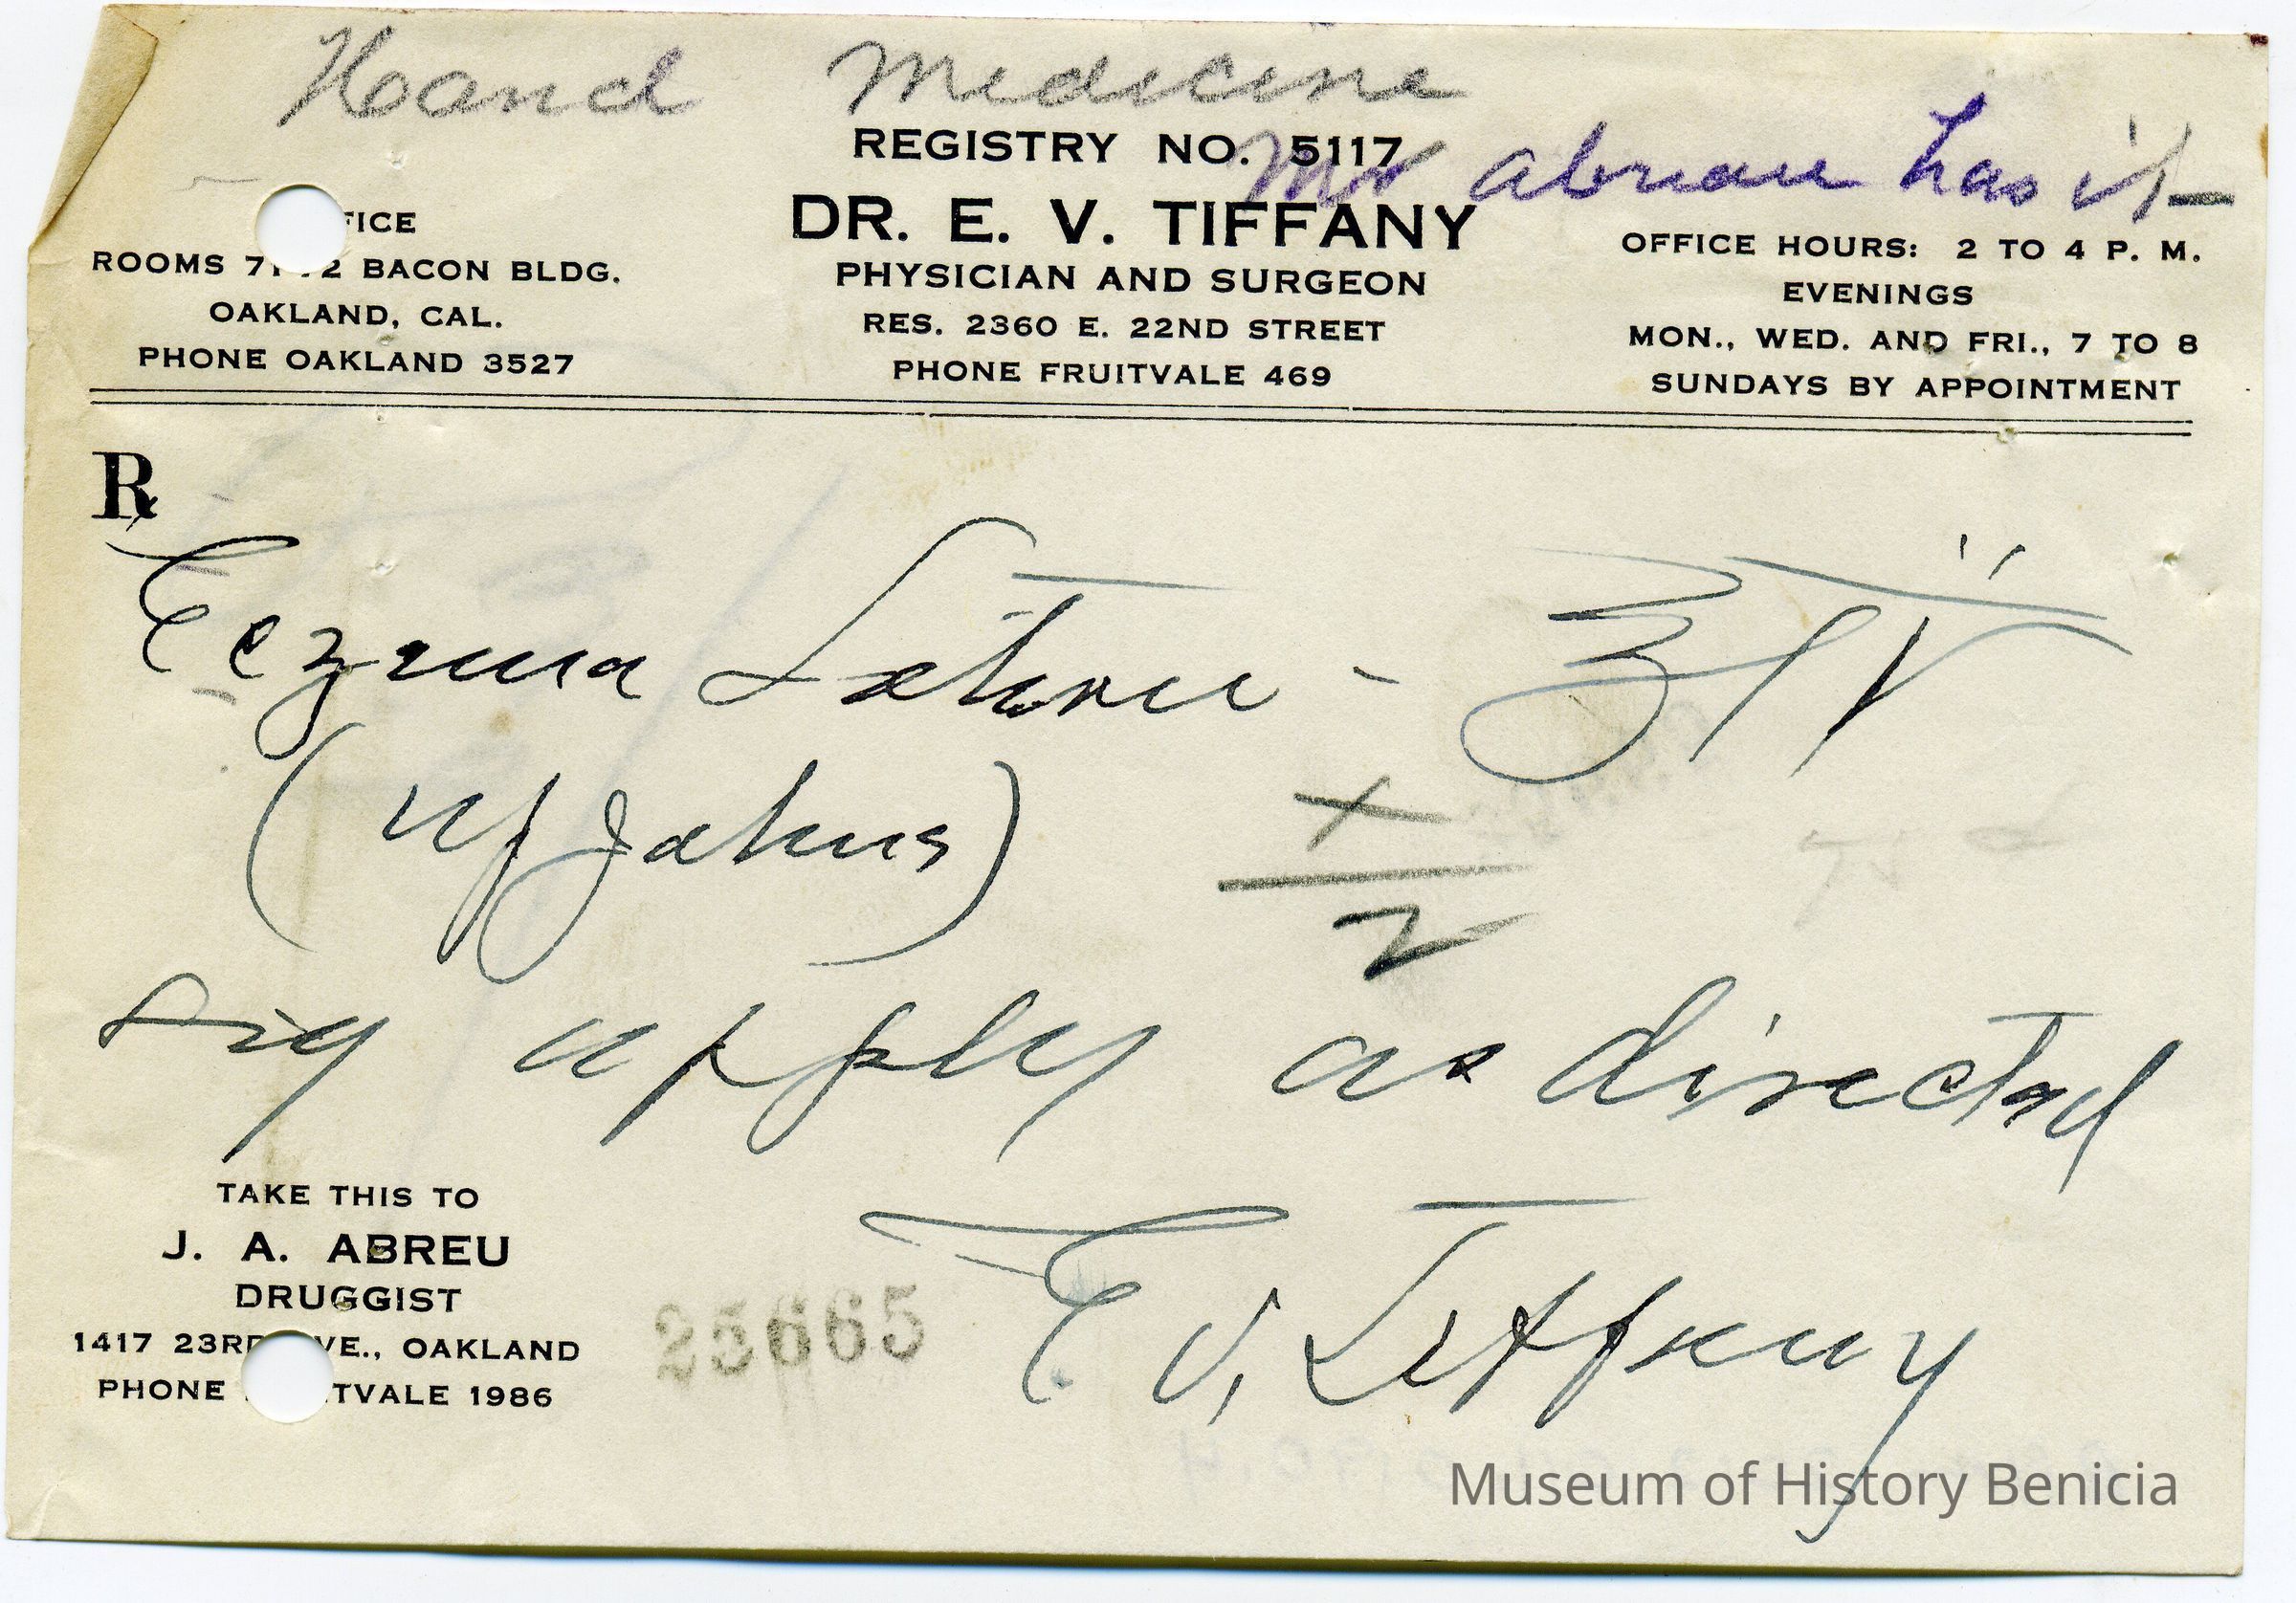 Hand Medicine
REGISTRY NO. 5117
Mr abrau has it-
DR. E. V. TIFFANY
PHYSICIAN AND SURGEON
RES. 2360 E. 22ND STREET
PHONE FRUITVALE 469
FICE
ROOMS 71 72 BACON BLDG.
OAKLAND, CAL.
PHONE OAKLAND 3527
OFFICE HOURS: 2 TO 4 P. M.
EVENINGS
MON., WED. AND FRI., 7 TO 8
SUNDAYS BY APPOINTMENT
℞
Eczema Lotion - ℥ IV
(Upjohns)
X
2
Sig apply as directed
TAKE THIS TO
J. A. ABREU
DRUGGIST
1417 23RD VE., OAKLAND
PHONE TVALE 1986
25665
E. V. Tiffany
Museum of History Benicia